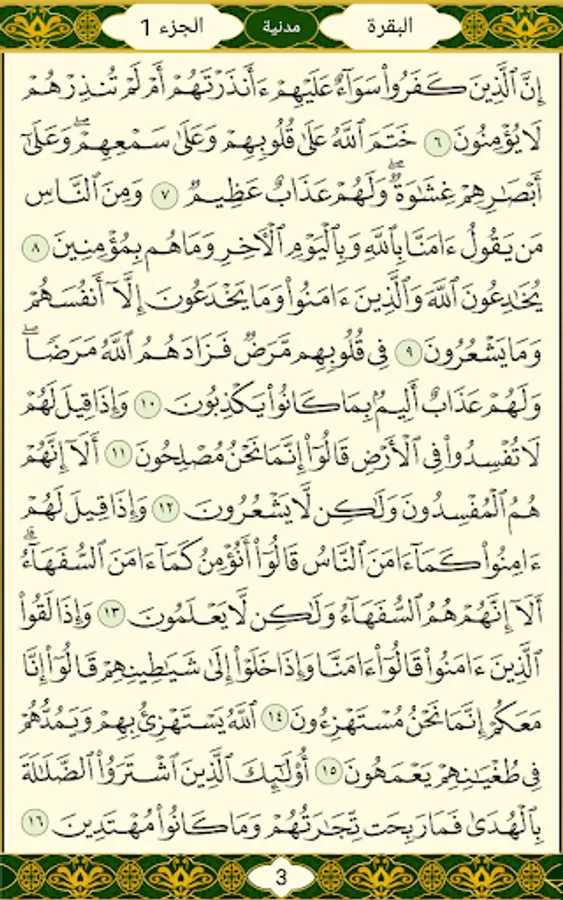 البقرة مدنية الجزء 1
إِنَّ ٱلَّذِينَ كَفَرُوا۟ سَوَآءٌ عَلَيْهِمْ ءَأَنذَرْتَهُمْ أَمْ لَمْ تُنذِرْهُمْ
لَا يُؤْمِنُونَ ٦ خَتَمَ ٱللَّهُ عَلَىٰ قُلُوبِهِمْ وَعَلَىٰ سَمْعِهِمْ ۖ وَعَلَىٰٓ
أَبْصَـٰرِهِمْ غِشَـٰوَةٌ ۖ وَلَهُمْ عَذَابٌ عَظِيمٌ ٧ وَمِنَ ٱلنَّاسِ
مَن يَقُولُ ءَامَنَّا بِٱللَّهِ وَبِٱلْيَوْمِ ٱلْـَٔاخِرِ وَمَا هُم بِمُؤْمِنِينَ ٨
يُخَـٰدِعُونَ ٱللَّهَ وَٱلَّذِينَ ءَامَنُوا۟ وَمَا يَخْدَعُونَ إِلَّآ أَنفُسَهُمْ
وَمَا يَشْعُرُونَ ٩ فِى قُلُوبِهِم مَّرَضٌ فَزَادَهُمُ ٱللَّهُ مَرَضًا ۖ
وَلَهُمْ عَذَابٌ أَلِيمٌۢ بِمَا كَانُوا۟ يَكْذِبُونَ ١٠ وَإِذَا قِيلَ لَهُمْ
لَا تُفْسِدُوا۟ فِى ٱلْأَرْضِ قَالُوٓا۟ إِنَّمَا نَحْنُ مُصْلِحُونَ ١١ أَلَآ إِنَّهُمْ
هُمُ ٱلْمُفْسِدُونَ وَلَـٰكِن لَّا يَشْعُرُونَ ١٢ وَإِذَا قِيلَ لَهُمْ
ءَامِنُوا۟ كَمَآ ءَامَنَ ٱلنَّاسُ قَالُوٓا۟ أَنُؤْمِنُ كَمَآ ءَامَنَ ٱلسُّفَهَآءُ ۗ
أَلَآ إِنَّهُمْ هُمُ ٱلسُّفَهَآءُ وَلَـٰكِن لَّا يَعْلَمُونَ ١٣ وَإِذَا لَقُوا۟
ٱلَّذِينَ ءَامَنُوا۟ قَالُوٓا۟ ءَامَنَّا وَإِذَا خَلَوْا۟ إِلَىٰ شَيَـٰطِينِهِمْ قَالُوٓا۟ إِنَّا
مَعَكُمْ إِنَّمَا نَحْنُ مُسْتَهْزِءُونَ ١٤ ٱللَّهُ يَسْتَهْزِئُ بِهِمْ وَيَمُدُّهُمْ
فِى طُغْيَـٰنِهِمْ يَعْمَهُونَ ١٥ أُو۟لَـٰٓئِكَ ٱلَّذِينَ ٱشْتَرَوُا۟ ٱلضَّلَـٰلَةَ
بِٱلْهُدَىٰ فَمَا رَبِحَت تِّجَـٰرَتُهُمْ وَمَا كَانُوا۟ مُهْتَدِينَ ١٦
3